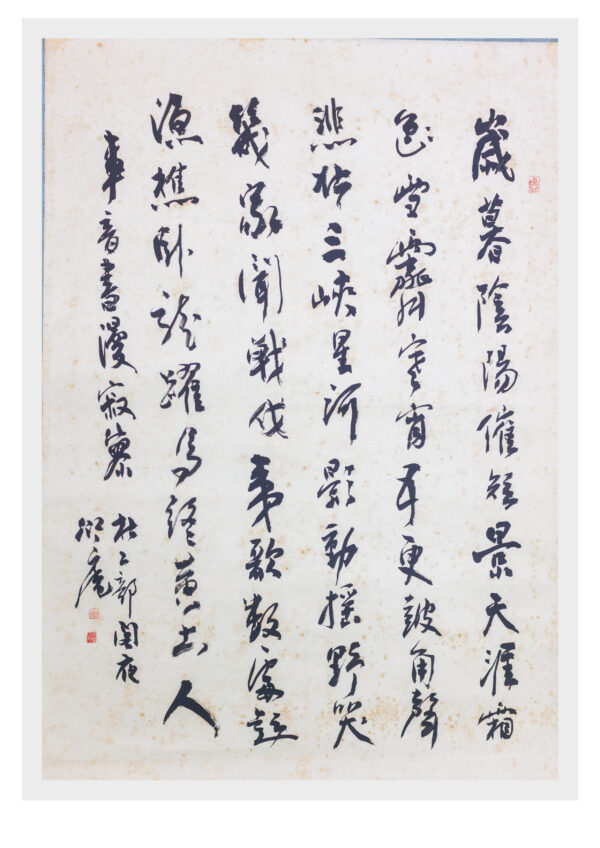 歲暮陰陽催短景天涯霜
色雪霽寒宵五更鼓角聲
悲壯三峽星河影動搖野哭
幾家聞戰伐夷歌數處起
漁樵臥龍躍馬終黃土人
事音書漫寂寥
杜工部閣夜
庵